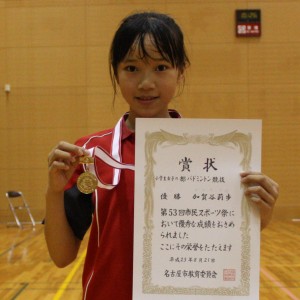 賞状
小学生女子の部バドミントン競技
優勝 加賀谷莉歩
第53回市民スポーツ祭に
おいて優秀な成績をおさ
められました
ここにその栄誉をたたえます
平成23年8月21日
名古屋市教育委員会